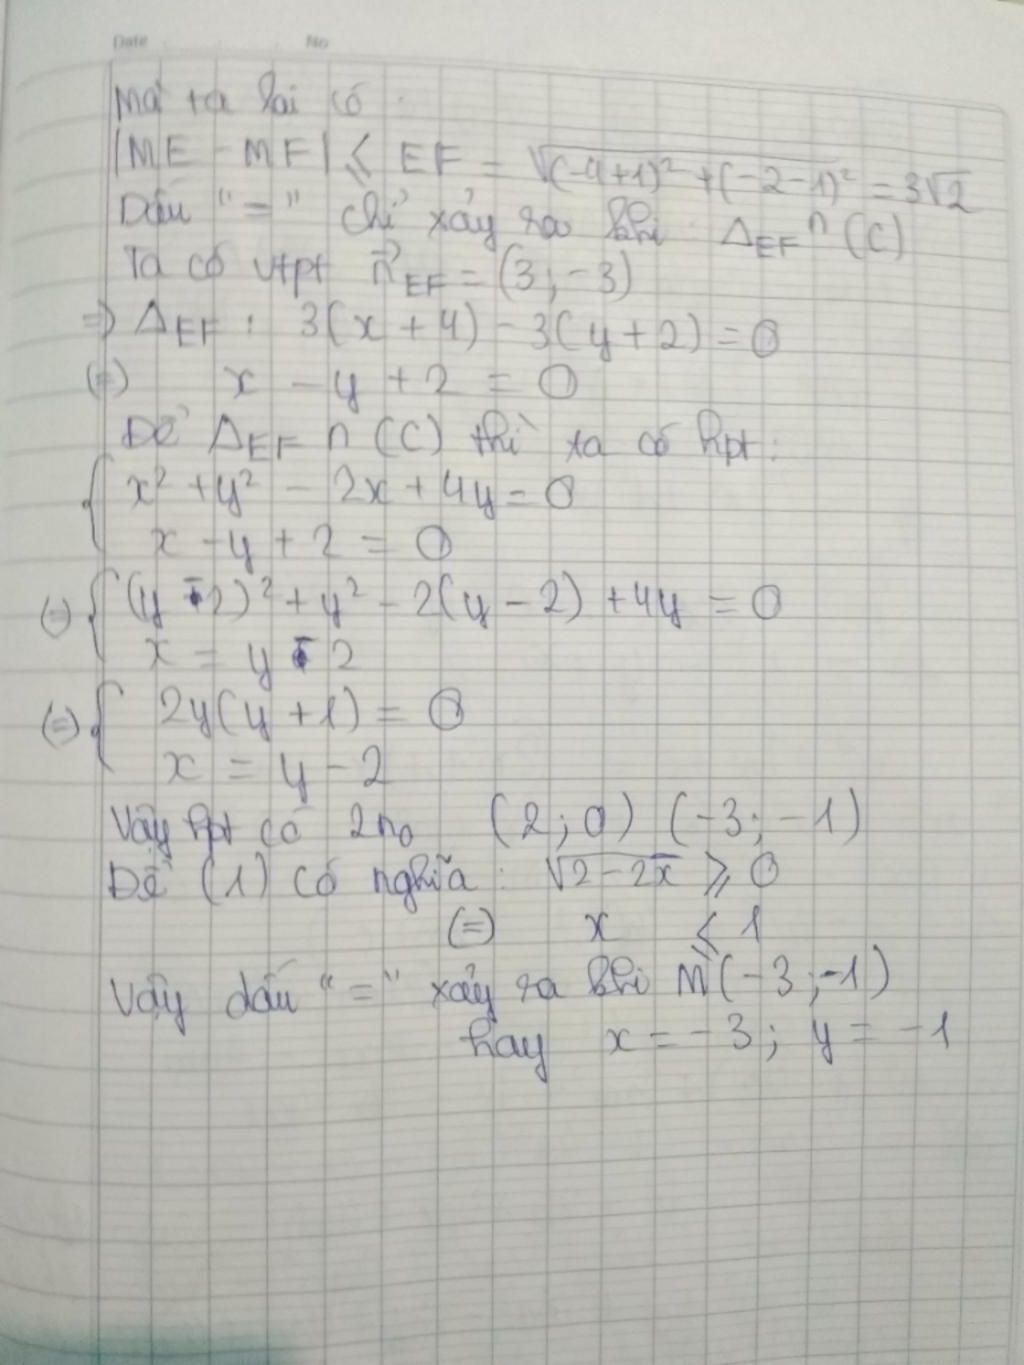 Date No
Mà ta lại có :
|ME - MF| ≤ EF = √(-4+1)² + (-2-1)² = 3√2
Dấu "=" chỉ xảy ra khi Δ_EF ∩ (C)
Ta có vtpt n⃗_EF = (3; -3)
=> Δ_EF : 3(x + 4) - 3(y + 2) = 0
(=) x - y + 2 = 0
Để Δ_EF ∩ (C) thì ta có hpt:
{ x² + y² - 2x + 4y = 0
x - y + 2 = 0
(=) { (y - 2)² + y² - 2(y - 2) + 4y = 0
x = y - 2
(=) { 2y(y + 1) = 0
x = y - 2
Vậy hpt có 2n₀ (2; 0) (-3; -1)
Để (1) có nghĩa : √2 - 2x ≥ 0
(=) x ≤ 1
Vậy dấu "=" xảy ra khi M(-3; -1)
hay x = -3; y = -1